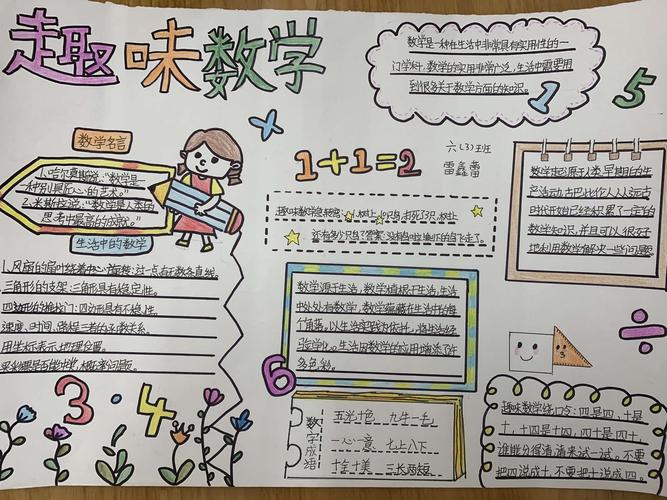 趣味数学
数学是一种在生活中非常具有实用性的一
门学科,数学的实用非常广泛,生活中需要用
到很多关于数学方面的知识。
1
5
数学名言
1.哈尔莫斯说:"数学是一
种别具匠心的艺术。"
2.米斯拉说:"数学是人类的
思考中最高的成就。"
×
1+1=2
六(3)班
雷鑫蕾
数学起源于人类早期的生
产活动,古巴比伦人从远古
时代开始已经积累了一定的
数学知识,并且可以很好
地利用数学解决一些问题
趣味数学急转弯:树上10只鸟,打死了3只,树上
还有多少只鸟?答案:没有鸟啦,剩下的鸟飞走了。
生活中的数学
三角形的支架:三角形具有稳定性。
四边形具有不稳定性。
速度、时间、路程三者的关系。
用坐标表示地理位置。
数学源于生活,数学植根于生活,生活
中处处有数学,数学蕴藏在生活中的每
个角落,以生活实践为依托,将生活经
验数学化。生活因数学的应用增添了许
多色彩。
÷
3·4
6
数字成语
五光十色 九牛一毛
一心一意 七上八下
十全十美 三长两短
趣味数学绕口令:四是四,十是
十,十四是十四,四十是四十,
谁能分得清,请来试一试。不要
把四说成十,不要把十说成四。